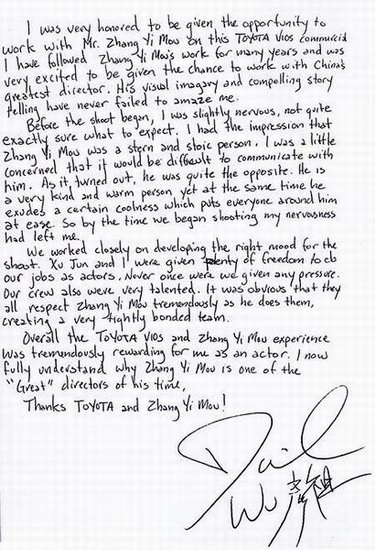 I was very honored to be given the opportunity to
work with Mr. Zhang Yi Mou on this TOYOTA VIOS commercial
I have followed Zhang Yi Mou's work for many years and was
very excited to be given the chance to work with China's
greatest director. His visual imagary and compelling story
telling have never failed to amaze me.
Before the shoot began, I was slightly nervous, not quite
exactly sure what to expect. I had the impression that
Zhang Yi Mou was a stern and stoic person. I was a little
concerned that it would be difficult to communicate with
him. As it turned out, he was quite the opposite. He is
a very kind and warm person yet at the same time he
exudes a certain coolness which puts everyone around him
at ease. So by the time we began shooting my nervousness
had left me.
We worked closely on developing the right mood for the
shoot. Xu Jun and I were given plenty of freedom to do
our jobs as actors. Never once were we given any pressure.
Our crew also were very talented. It was obvious that they
all respect Zhang Yi Mou tremendously as he does them,
creating a very tightly bonded team.
Overall the TOYOTA VIOS and Zhang Yi Mou experience
was tremendously rewarding for me as an actor. I now
fully understand why Zhang Yi Mou is one of the
"Great" directors of his time.
Thanks TOYOTA and Zhang Yi Mou!
Daniel
Wu 彥祖